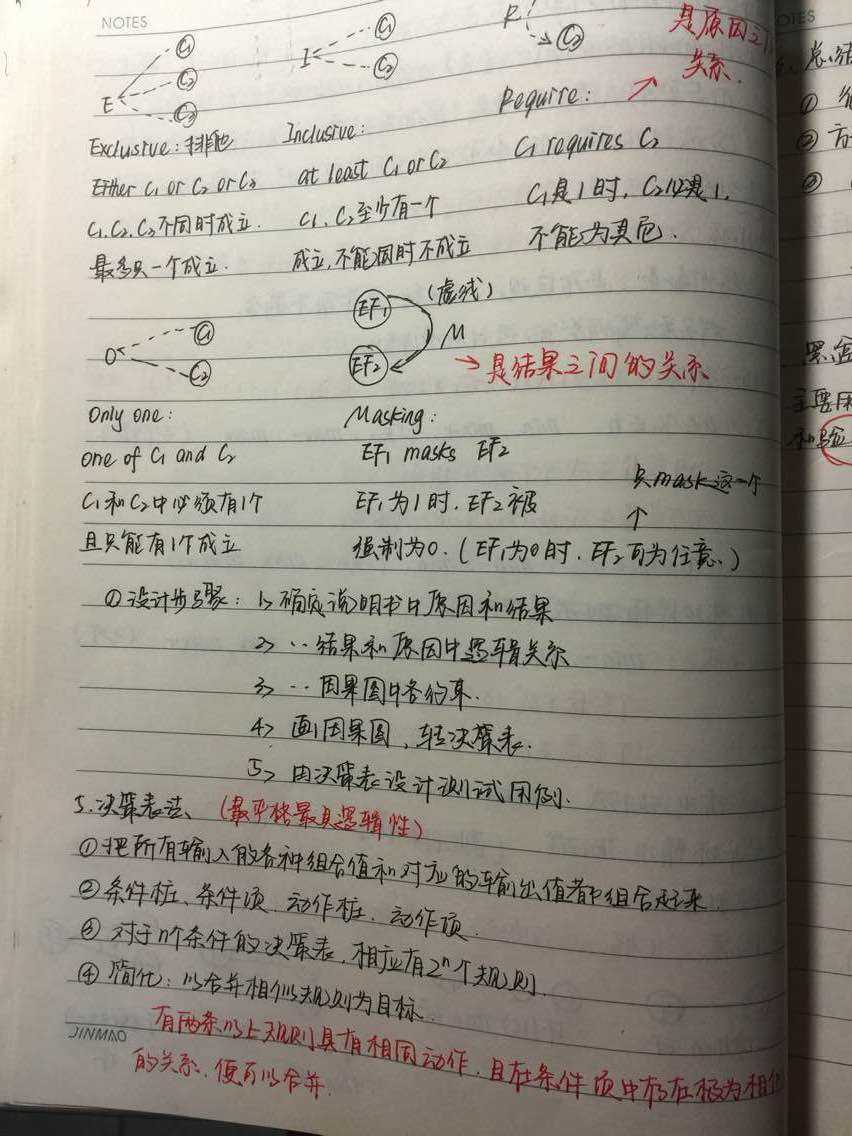 NOTES
E C1 C2 C3 I C1 C2 R C2 是原因之间
关系.
Exclusive: 排他 Inclusive: Require:
Either C1 or C2 or C3 at least C1 or C2 C1 requires C2
C1.C2.C3不同时成立. C1、C2至少有一个 C1是1时, C2必是1.
最多只一个成立. 成立,不能同时不成立 不能为其他.
O C1 C2 EF1 EF2 M (虚线)
→ 是结果之间的关系
Only one: Masking:
one of C1 and C2 EF1 masks EF2
只mask这一个
C1和C2中必须有1个 EF1为1时. EF2被 ↑
且只能有1个成立 强制为0. (EF1为0时. EF2可为任意.)
设计步骤: 1> 确定说明书中原因和结果
2> ‥结果和原因中逻辑关系
3> ‥因果图中各约束.
4> 画因果图、转决策表.
5> 由决策表设计测试用例.
5.决策表法、(最严格最具逻辑性)
①把所有输入的各种组合值和对应的输出值都组合起来.
②条件桩、条件项 动作桩. 动作项.
③ 对于n个条件的决策表, 相应有2ⁿ个规则.
④ 简化: 以合并相似规则为目标.
有两条以上规则具有相同动作, 且在条件项中存在极为相似
的关系、便可以合并.
JINMAO
NOTES
总结
①
②
③
主要用
和